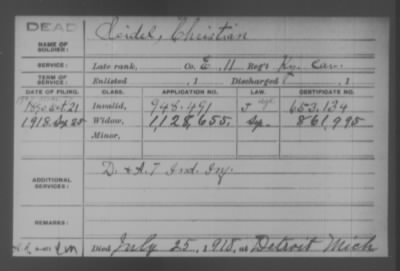 DEAD
NAME OF SOLDIER: Seidel, Christian
SERVICE: Late rank, Co. E, 11 Reg't Ky. Cav.
TERM OF SERVICE: Enlisted , 1 Discharged , 1
DATE OF FILING. CLASS. APPLICATION NO. LAW. CERTIFICATE NO.
1890 Oct 21 Invalid, 948.491 J 653.134
1918. Sep 25 Widow, 1,128,655. Sep. 861,995
Minor,
ADDITIONAL SERVICES: D. & A. T Ind. Inf.
REMARKS:
Died July 25, 1918, at Detroit Mich